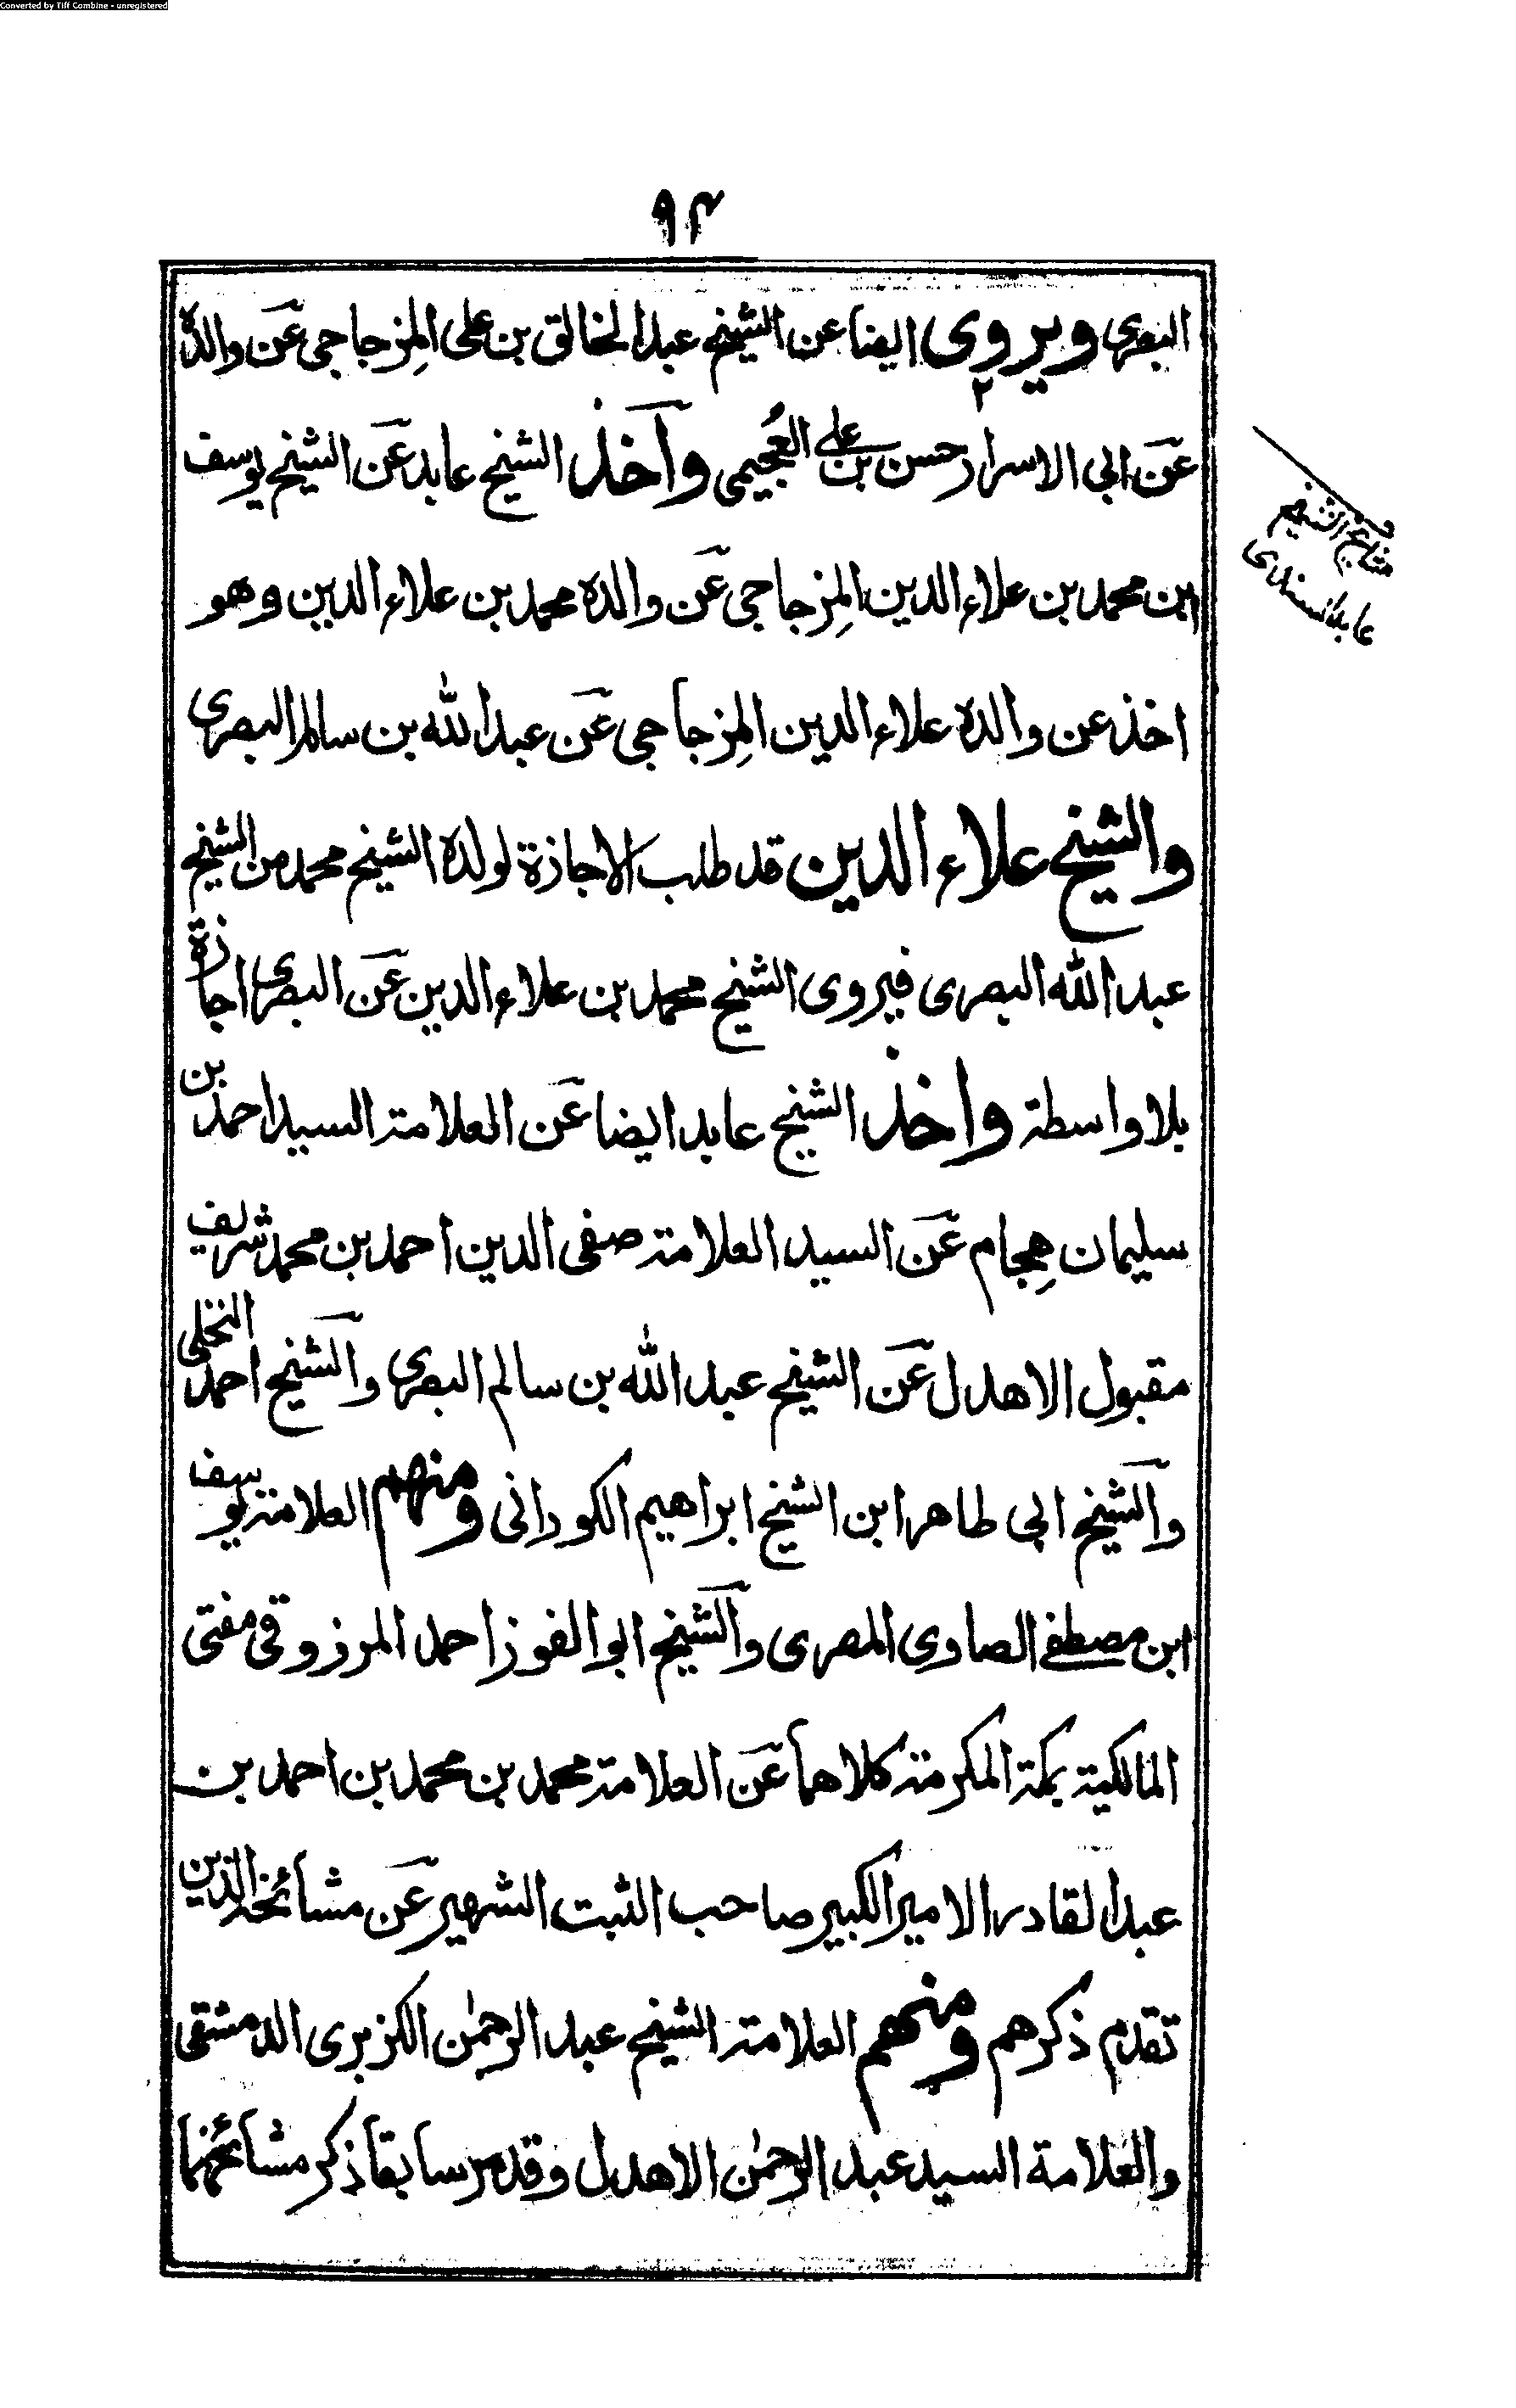 Converted by Tiff Combine - unregistered
٩٤
البصری ویروی ایضا عن الشیخ عبد الخالق بن علی المِزجاجی عَن والدہ
عَن ابی الاسرار حسن بن علی العُجیمی وأخذ الشیخ عابد عَن الشیخ یوسف
ابن محمد بن علاء الدین المِزجاجی عَن والدہ محمد بن علاء الدین وهو
اخذ عن والدہ علاء الدین المِزجاجی عَن عبد الله بن سالم البصری
والشیخ علاء الدین قد طلب الاجازة لولدہ الشیخ محمد من الشیخ
عبد الله البصری فیروی الشیخ محمد بن علاء الدین عَن البصری اجازة
بلا واسطة واخذ الشیخ عابد ایضا عَن العلامة السید احمد بن
سلیمان هِجام عَن السید العلامة صفی الدین احمد بن محمد شریف
مقبول الاهدل عَن الشیخ عبد الله بن سالم البصری والشیخ احمد النخلی
والشیخ ابی طاهر ابن الشیخ ابراهیم الکورانی ومنهم العلامة یوسف
ابن مصطفے الصاوی المصری والشیخ ابو الفوز احمد المرزوقی مفتی
المالکیة بمکة المکرمة کلاهما عَن العلامة محمد بن محمد بن احمد بن
عبد القادر الامیر الکبیر صاحب الثبت الشهیر عَن مشائخه الذین
تقدم ذکرهم ومنهم العلامة الشیخ عبد الرحمٰن الکزبری الدمشقی
والعلامة السید عبد الرحمٰن الاهدل وقد مر سابقا ذکر مشائخهما
مشائخ الشیخ
عابد السندی